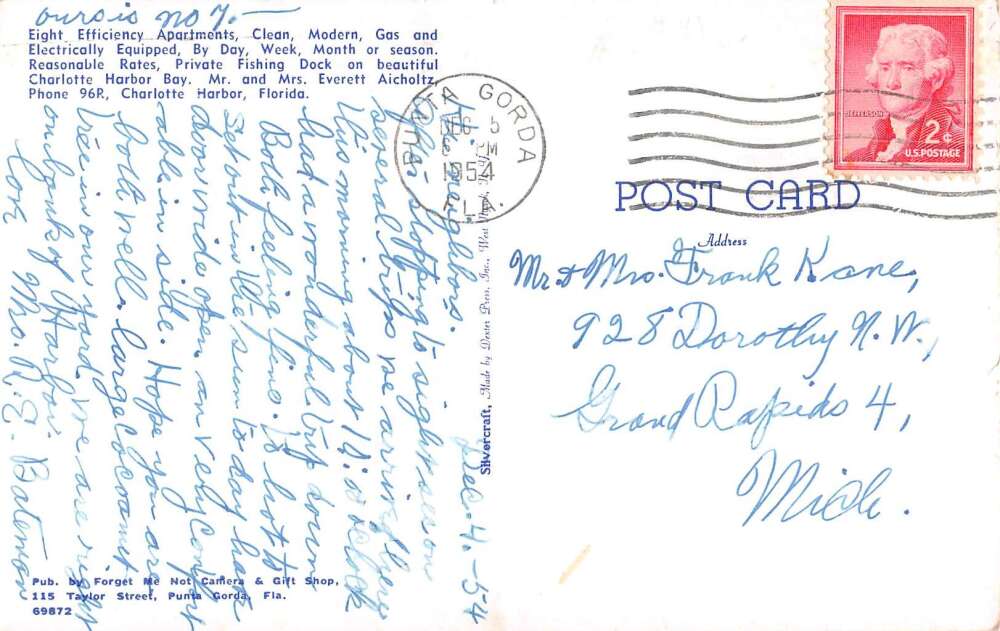 ours is no 7.—
Eight Efficiency Apartments, Clean, Modern, Gas and
Electrically Equipped, By Day, Week, Month or season.
Reasonable Rates, Private Fishing Dock on beautiful
Charlotte Harbor Bay. Mr. and Mrs. Everett Aicholtz
Phone 96R, Charlotte Harbor, Florida.
Dec. 4. - 54
Hi. neighbors.
after stopping to sight see on
several bridges we arrived here
this morning about 10: o clock
had a wonderful trip down
Both feeling fine. to hot to
set out in the sun to day have
doors wide open. an very comfort
able in side. Hope you are
both well. large cocoanut
tree in our yard. we are right
on bank of Harbor.
Cora Mrs. R. E. Bateman
Pub. by Forget Me Not Camera & Gift Shop,
115 Taylor Street, Punta Gorda, Fla.
69872
Silvercraft, Made by Dexter Press, Inc., West
PUNTA GORDA
DEC 5
6 PM
1954
FLA.
JEFFERSON
2¢
U.S. POSTAGE
POST CARD
Address
Mr. & Mrs. Frank Kane,
928 Dorothy N. W.,
Grand Rapids 4,
Mich.